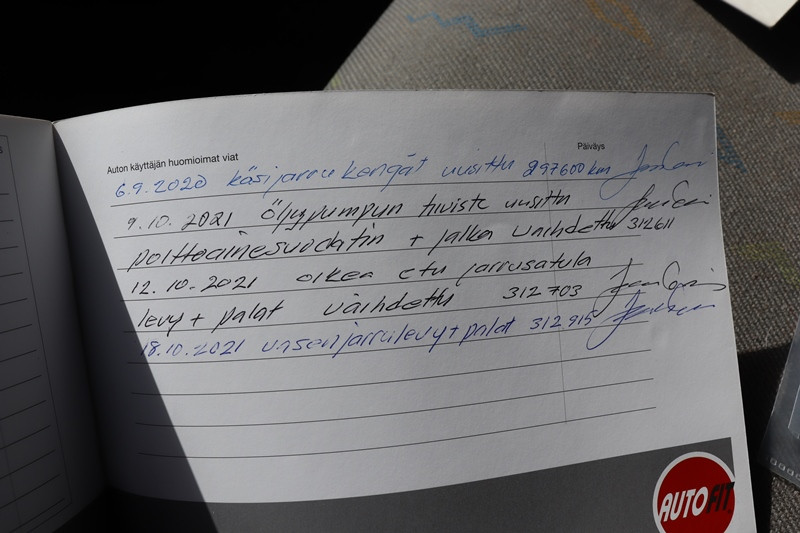 Auton käyttäjän huomioimat viat
Päiväys
6.9.2020 käsijarru kengät uusittu 297600 km
9.10.2021 öljypumpun tiiviste uusittu
polttoainesuodatin + jalka vaihdettu 312611
12.10.2021 oikea etu jarrusatula
levy + palat vaihdettu 312703
18.10.2021 vasen jarrulevy + palat 312915
AUTOFIT